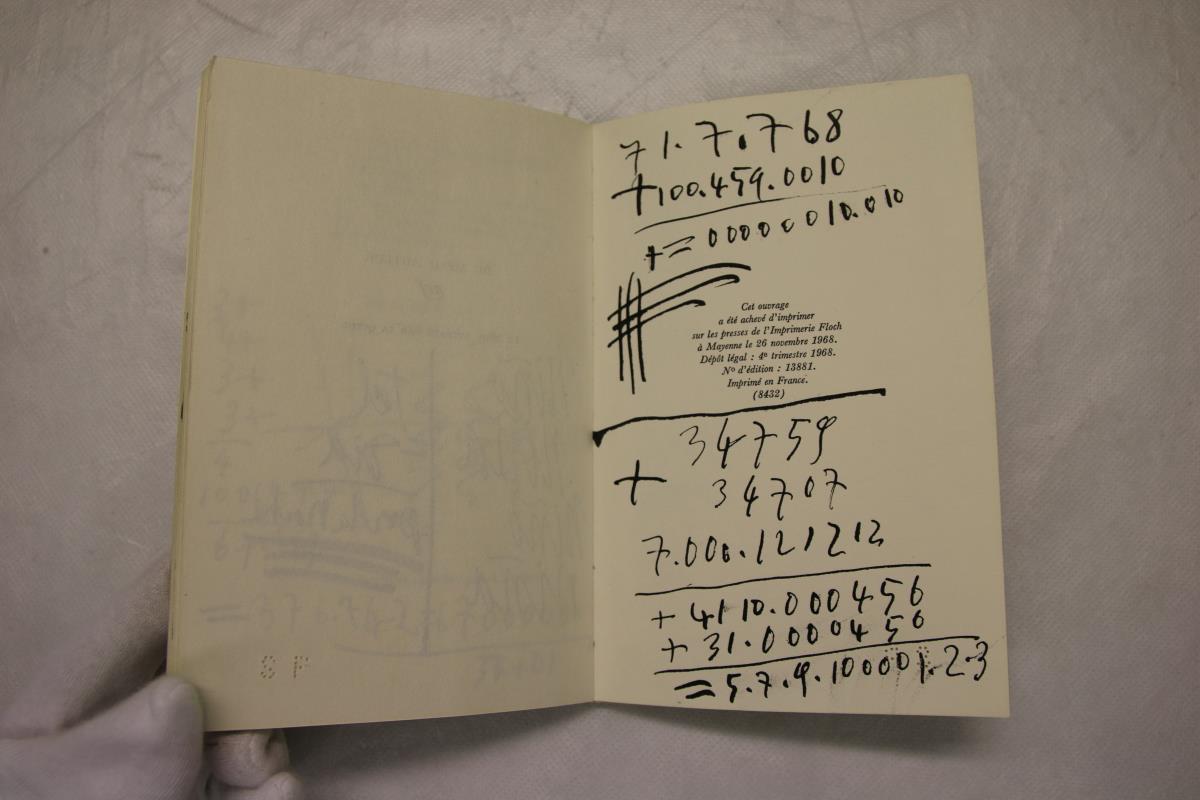 71.7.768
+100.459.0010
+=00000010.010
Cet ouvrage
a été achevé d'imprimer
sur les presses de l'Imprimerie Floch
à Mayenne le 26 novembre 1968.
Dépôt légal : 4e trimestre 1968.
No d'édition : 13881.
Imprimé en France.
(8432)
34759
+ 34707
7.000.121212
+ 4110.000456
+ 31.0000456
=5.7.9.100001.2.3